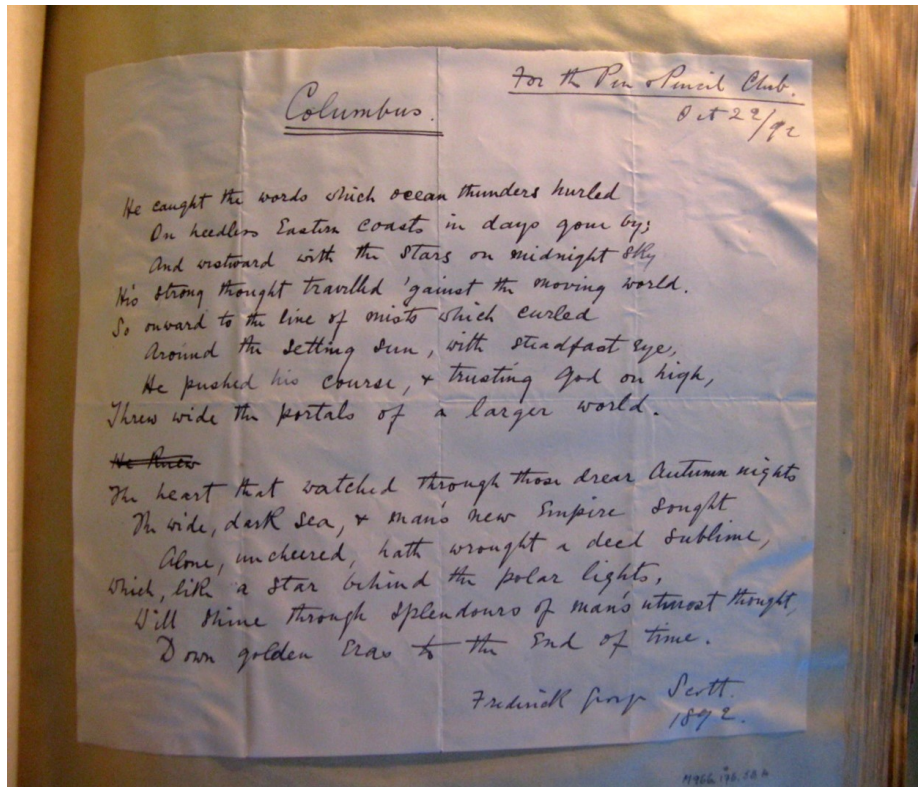 For the Pen & Pencil Club.
Oct 22/92
Columbus.
He caught the words which ocean thunders hurled
On heedless Eastern coasts in days gone by;
And westward with the stars on midnight sky
His strong thought travelled 'gainst the moving world.
So onward to the line of mists which curled
Around the setting sun, with steadfast eye,
He pushed his course, & trusting God on high,
Threw wide the portals of a larger world.
He knew
The heart that watched through those drear Autumn nights
The wide, dark sea, & man's new Empire sought
Alone, uncheered, hath wrought a deed sublime,
Which, like a star behind the polar lights,
Will shine through splendours of man's utmost thought,
Down golden Eras to the End of time.
Frederick George Scott.
1892.